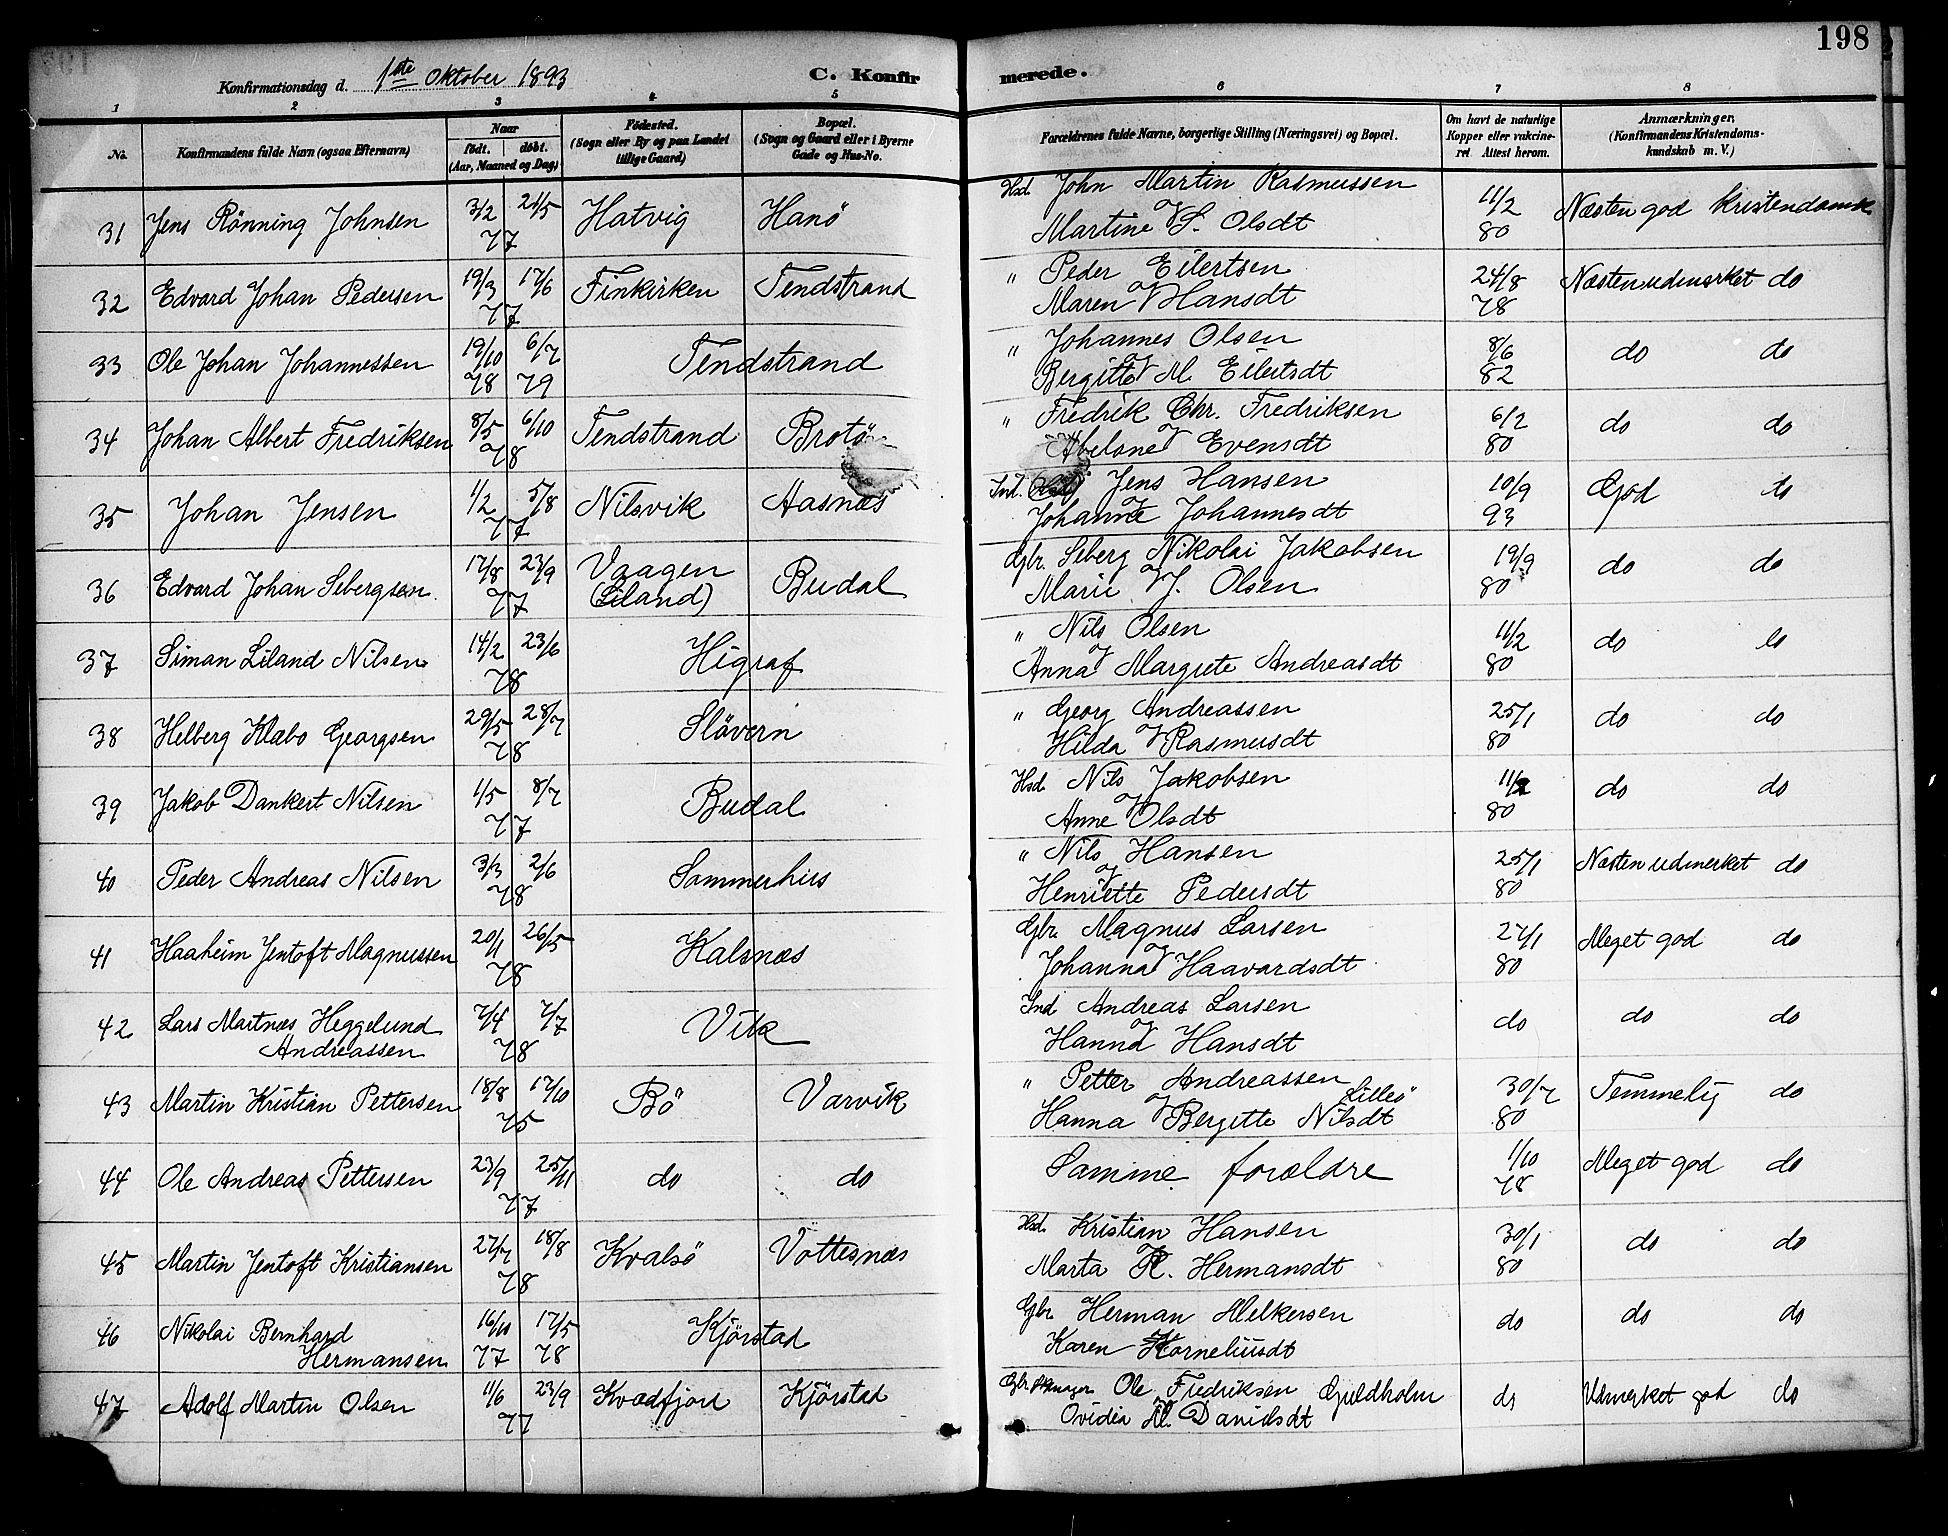 198
Konfirmationsdag d. 1ste Oktober 1893
C. Konfirmerede.
1 2 3 4 5 6 7 8
No.
Konfirmandens fulde Navn (ogsaa Efternavn)
Naar
født. døbt.
(Aar, Maaned og Dag)
Fødested.
(Sogn eller By og paa Landet
tillige Gaard)
Bopæl.
(Sogn og Gaard eller i Byerne
Gade og Hus-No.
Forældrenes fulde Navne, borgerlige Stilling (Næringsvei) og Bopæl.
Om havt de naturlige
Kopper eller vakcine-
ret. Attest herom.
Anmærkninger,
(Konfirmandens Kristendoms-
kundskab m. V.)
31 Jens Rönning Johnsen 3/2 21/5 77 Hatvig Hanö Hsd. John Martin Rasmussen
og Martine S. Olsdt 11/2 80 Næsten god Kristendomsk
32 Edvard Johan Pedersen 19/3 17/6 77 Finkirken Tendstrand " Peder Eilertsen
og Maren Hansdt 24/8 78 Næsten udmerket do
33 Ole Johan Johannessen 19/10 78 6/7 79 Tendstrand " Johannes Olsen
og Bergitte M. Eilertsdt 8/6 82 do do
34 Johan Albert Fredriksen 8/5 6/10 78 Tendstrand Brotö " Fredrik Chr. Fredriksen
og Abelone Evensdt 6/2 80 do do
35 Johan Jensen 1/2 5/8 77 Nilsvik Aasnæs Ind. Jens Hansen
og Johanne Johannesdt 10/9 93 God do
36 Edvard Johan Sebergsen 17/8 23/9 77 Vaagen (Liland) Budal Gbr. Seberg Nikolai Jakobsen
og Marie J. Olsen 19/9 80 do do
37 Siman Liland Nilsen 14/2 23/6 78 Higraf " Nils Olsen
og Anna Margrete Andreasdt 11/2 80 do do
38 Helberg Klæbo Georgsen 29/5 28/7 78 Slövern " Georg Andreassen
og Hilda Rasmusdt 25/1 80 do do
39 Jakob Dankert Nilsen 1/5 8/7 77 Budal Hsd. Nils Jakobsen
og Anne Olsdt 11/2 80 do do
40 Peder Andreas Nilsen 3/3 2/6 78 Sommerhus " Nils Hansen
og Henriette Pedersdt 25/1 80 Næsten udmerket do
41 Haaheim Jentoft Magnussen 20/1 26/5 78 Kalsnæs Gbr. Magnus Larsen
og Johanna Haavardsdt 27/1 80 Meget god do
42 Lars Martnæs Heggelund
Andreassen 7/4 7/7 78 Vik Ind Andreas Larsen
og Hanna Hansdt do do do
43 Martin Kristian Pettersen 18/8 17/10 75 Bö Varvik " Petter Andreassen Lilleö
og Hanna Bergitte Nilsdt 30/7 80 Temmelig do
44 Ole Andreas Pettersen 23/9 25/11 77 do do Samme forældre 1/10 78 Meget god do
45 Martin Jentoft Kristiansen 27/7 18/8 78 Kvalsö Vottesnæs Hsd. Kristian Hansen
og Marta K. Hermansdt 30/1 80 do do
46 Nikolai Bernhard
Hermansen 16/10 77 17/5 78 Kjörstad Gbr. Herman Melkersen
Karen Korneliusdt do do do
47 Adolf Martin Olsen 11/6 23/9 77 Kvædfjord Kjörstad Gbr. Ole Fredriksen Guldholm
Ovidia M. Danielsdt do Udmerket god do